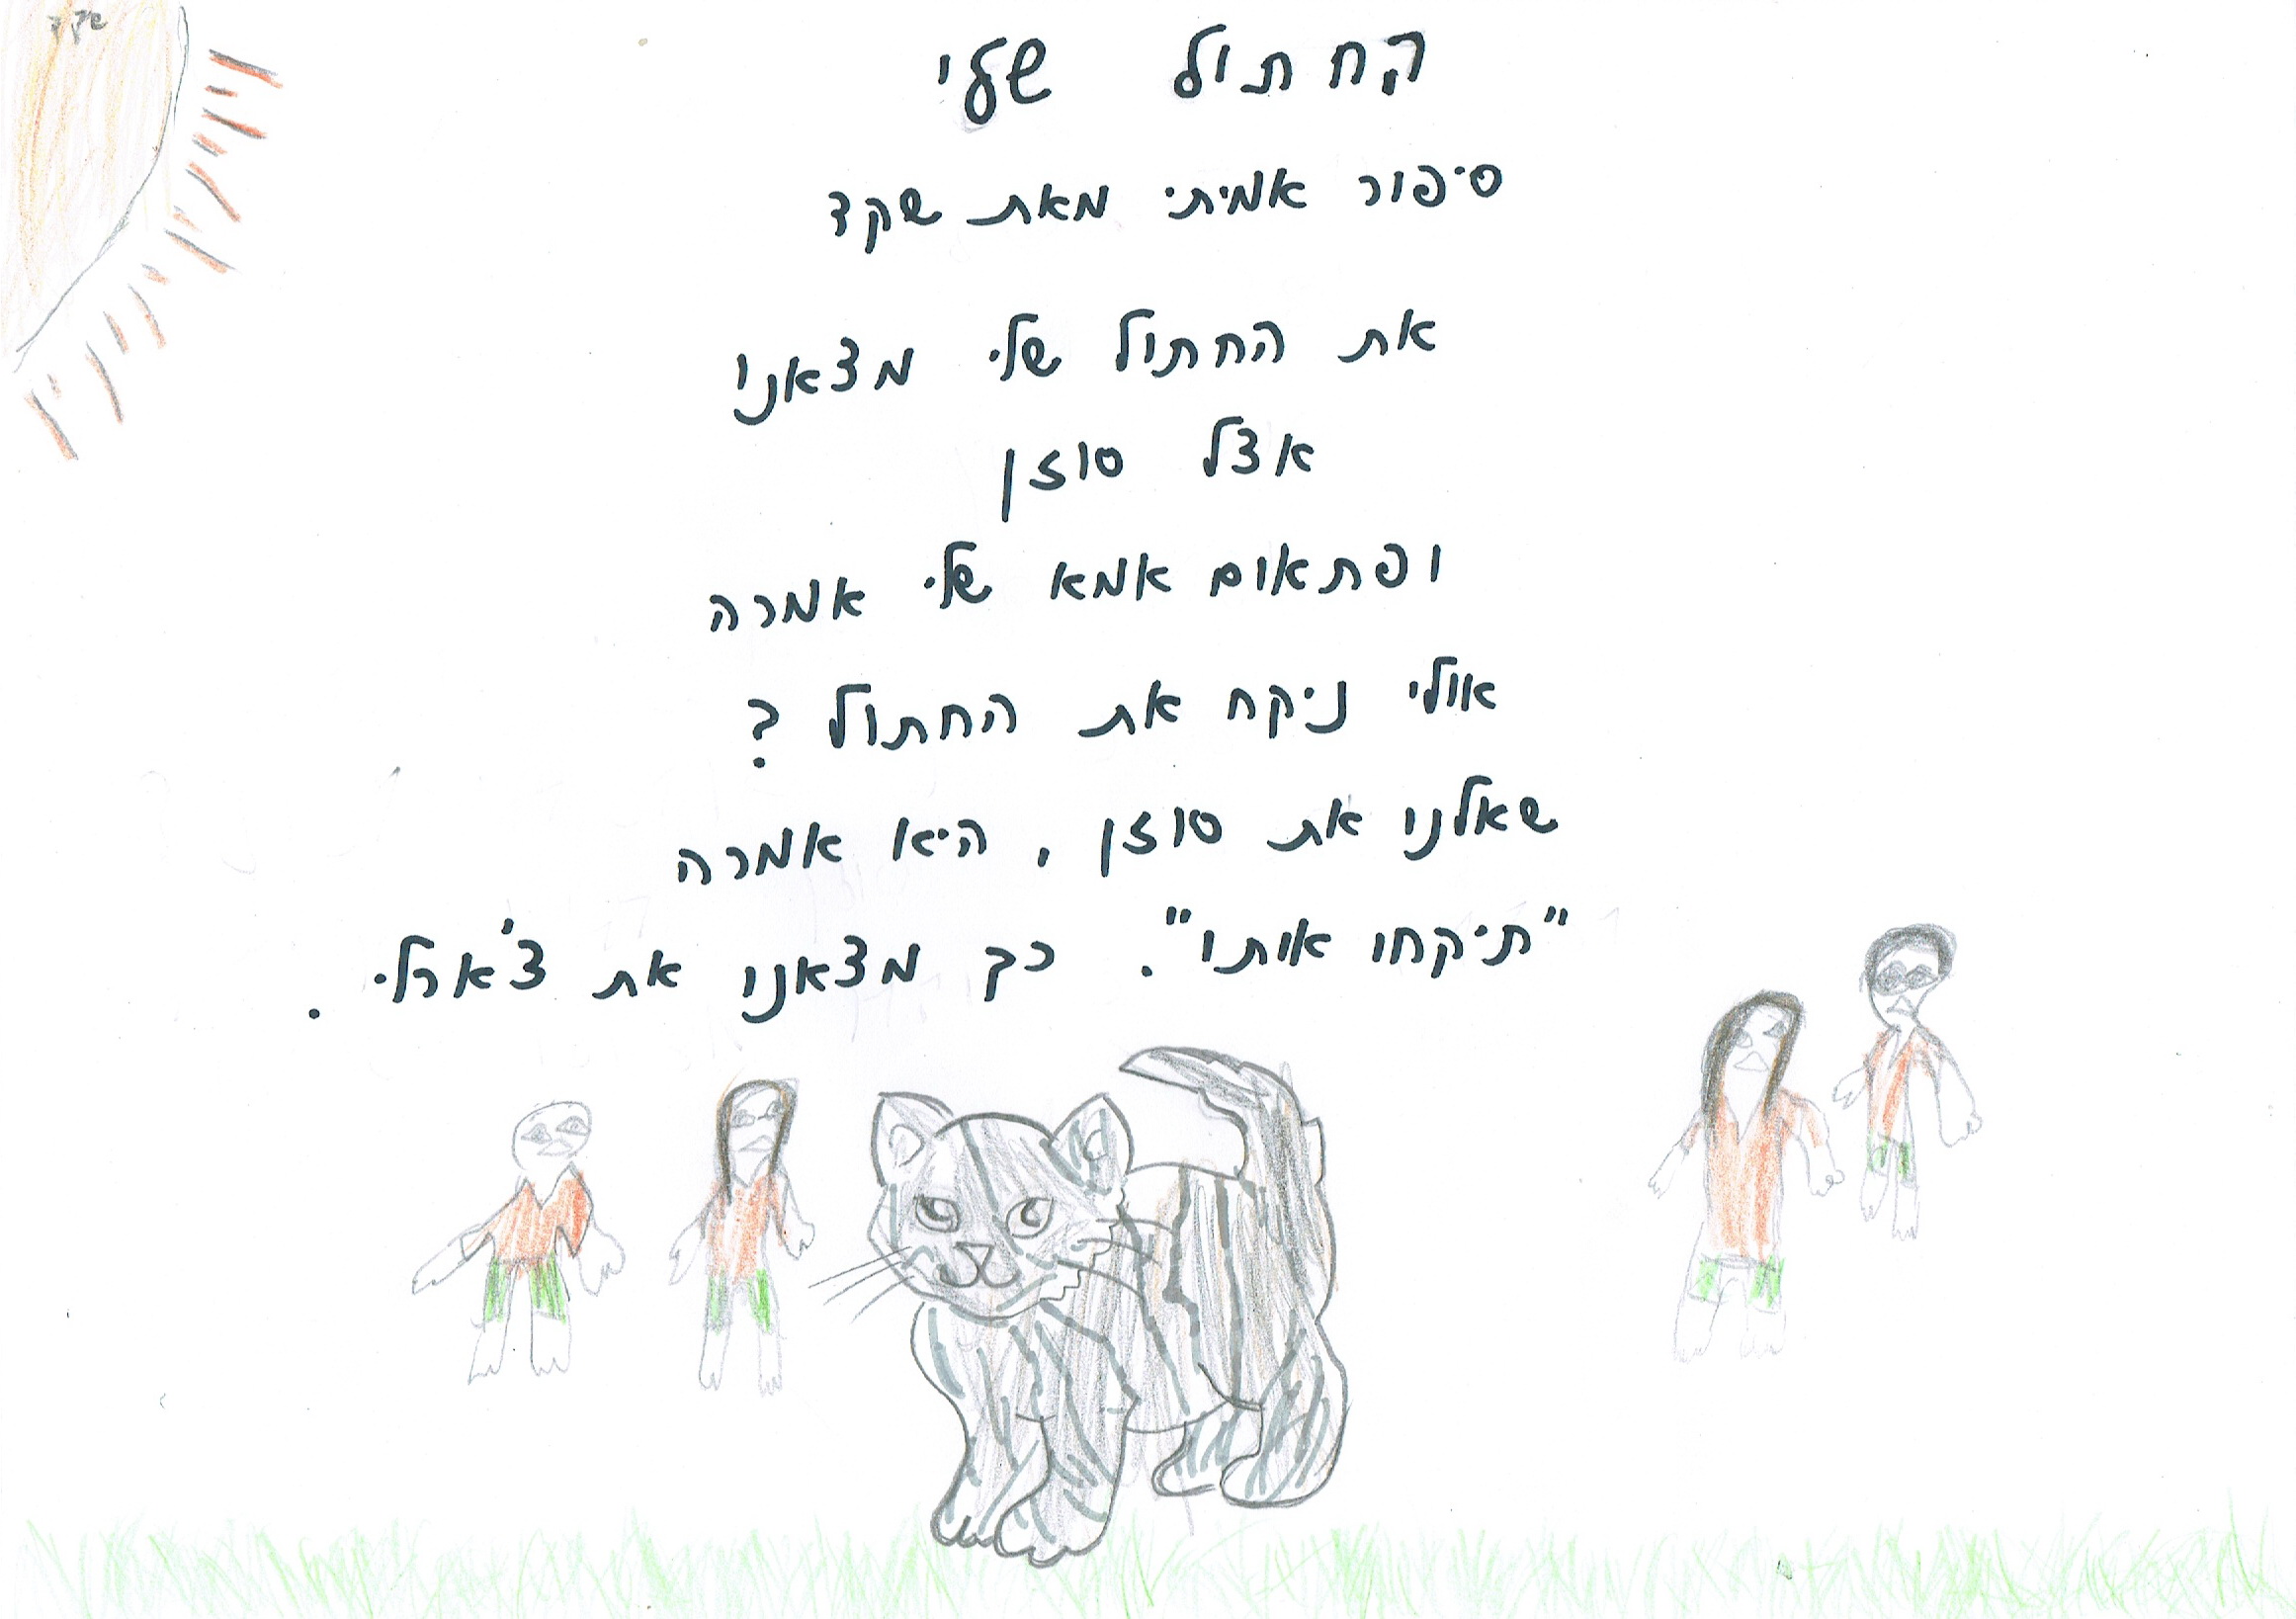 שקד
החתול שלי
סיפור אמיתי מאת שקד
את החתול שלי מצאנו
אצל סוזן
ופתאום אמא שלי אמרה
אולי ניקח את החתול ?
שאלנו את סוזן , היא אמרה
"תיקחו אותו". כך מצאנו את צ'ארלי .